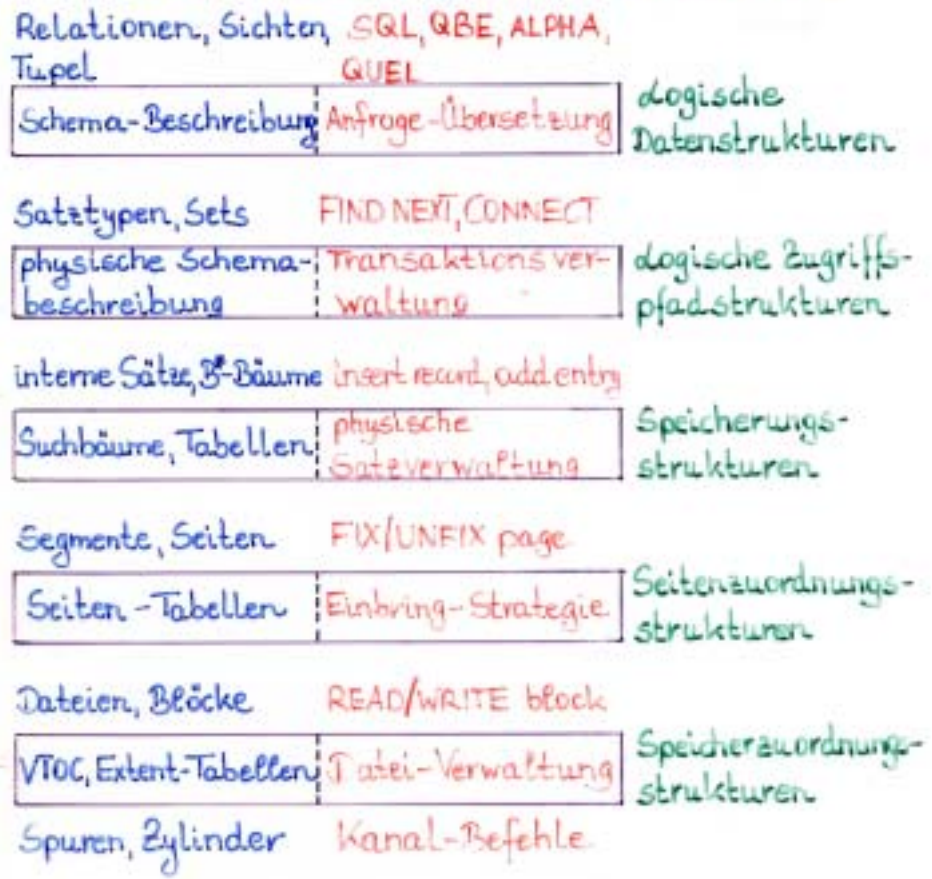 Relationen, Sichten, SQL, QBE, ALPHA,
Tupel QUEL
Schema-Beschreibung Anfrage-Übersetzung
Logische
Datenstrukturen
Satztypen, Sets FIND NEXT, CONNECT
physische Schema- Transaktionsver-
beschreibung waltung
Logische Zugriffs-
pfadstrukturen
interne Sätze, B*-Bäume insert record, add entry
Suchbäume, Tabellen physische
Satzverwaltung
Speicherungs-
strukturen
Segmente, Seiten FIX/UNFIX page
Seiten-Tabellen Einbring-Strategie
Seitenzuordnungs-
strukturen
Dateien, Blöcke READ/WRITE block
VTOC, Extent-Tabellen Datei-Verwaltung
Speicherzuordnungs-
strukturen
Spuren, Zylinder Kanal-Befehle